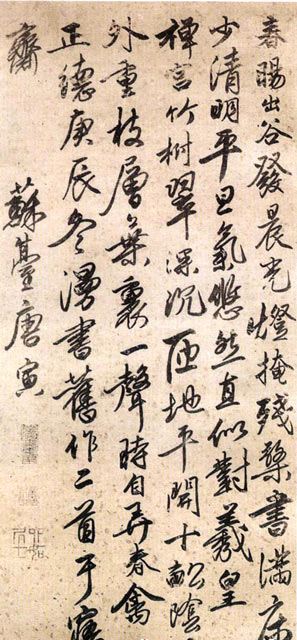 春暘出谷發晨光燈掩殘檠書滿床
少清明平旦氣悠然直似對羲皇
禪言竹樹翠深沉匝地平開十畝陰
外重枝層葉裏一聲時自弄春禽
正德庚辰冬漫書舊作二首于
齋
蘇臺唐寅